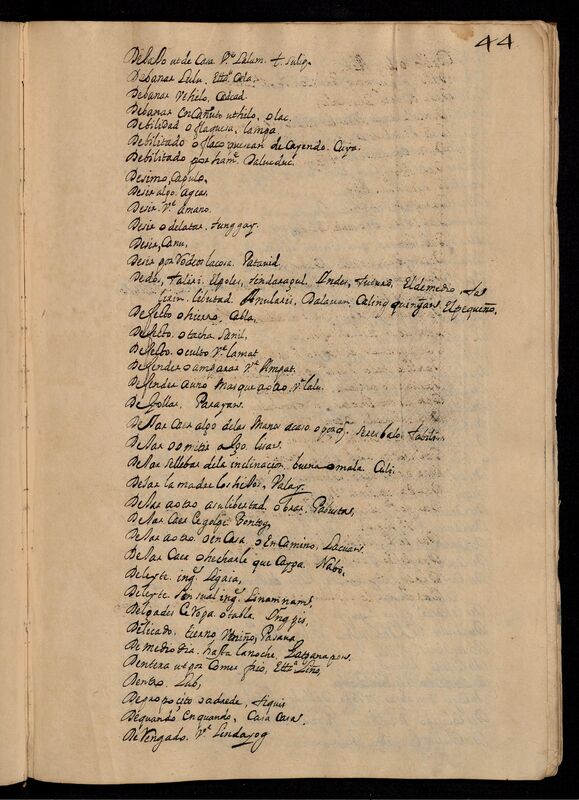 44
Debajo uno de Casa. Vte Lalum. t. sulip.
Debanar Lulu. Etta Cala.
Debanar Vt hilo. Cadcad
Debanar en Cañuto ut hilo, olac.
Debilidad o flaquesa. lampa
Debilitado o flaco que van de Cayendo. Cuya.
Debilitado por ham. Dalucduc.
Desimo, Capulo,
Desir algo. agcas,
Desir. Vte amano.
Desir o delatar. tunggay.
Desir, Canu,
Desir por Vo de os la cosa. Patanid
Dedos, taliri. El goles, tindaragul. Indes, tuturo, El de medio, ta
liriri libutad. Anularis, Dalauan Caling quinjans. El pequeño,
Defecto o hierro, Cabla,
Defecto. o tacha. Sanil,
Defecto. oculto Vte lamat
Defender o amparar Vte Ampat.
Defender a uno mas que a otro. Vte lalu.
Degollar, Parayans.
Dejar Caer algo de las Manos acaso, o por q.
Dejar o omitir algo. lisans.
Dejar se llebar de la inclinacion, buena o mala. Culi.
Dejar la madre los hijos, Palay.
Dejar a otro a su libertad. obrar, Pabustans,
Dejar Caer de golpe. Bontoy,
Dejar a otro. o en Casa, o En Camino, Lacuans.
Dejar Caer o hecharle que Cayga. Nabo,
Deleyte. ing. Ligaia,
Deleyte sensual ing. Linamnam,
Delgades de Ropa. o tabla. Ingpis,
Delicado. tierno Vt niño, Pasana
De medio dia. hasta la noche. Gatpanapon.
Dentera ut por Comer frio, Etta Liño,
Dentro. Lub,
De proposito o adrede, tiquis
De quando, En quando, Casa Casas.
De Vengado. Vte Lindayog